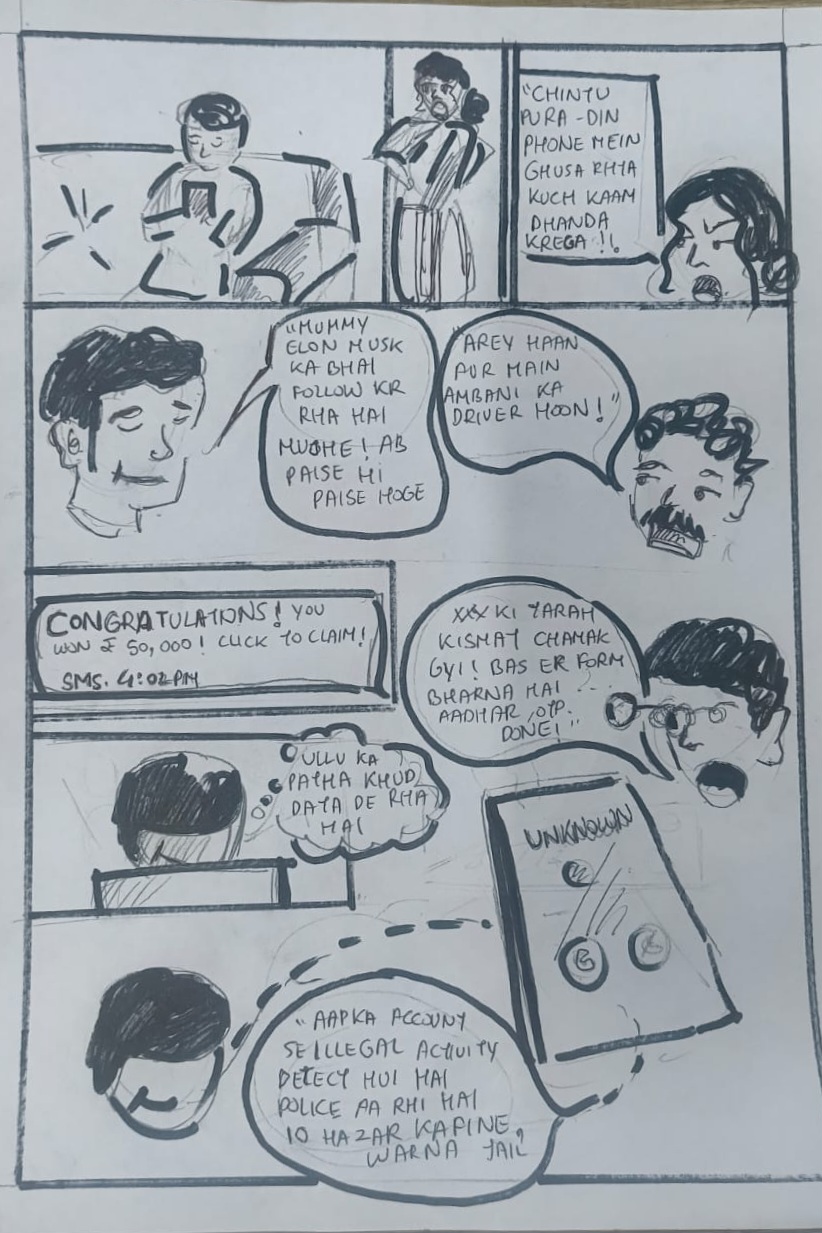 "CHINTU
PURA-DIN
PHONE MEIN
GHUSA RHTA
KUCH KAAM
DHANDA
KREGA !!
"MUMMY
ELON MUSK
KA BHAI
FOLLOW KR
RHA HAI
MUJHE! AB
PAISE HI
PAISE HOGE
"AREY HAAN
AUR MAIN
AMBANI KA
DRIVER HOON!"
CONGRATULATIONS! YOU
WON ₹ 50,000! CLICK TO CLAIM!
SMS. 4:02 PM
XXX KI TARAH
KISMAT CHAMAK
GYI! BAS EK FORM
BHARNA HAI --
AADHAR, OTP.
DONE!"
ULLU KA
PATHA KHUD
DATA DE RHA
HAI
UNKNOWN
"AAPKA ACCOUNT
SE ILLEGAL ACTIVITY
DETECT HUI HAI
POLICE AA RHI HAI
10 HAZAR KA FINE,
WARNA JAIL